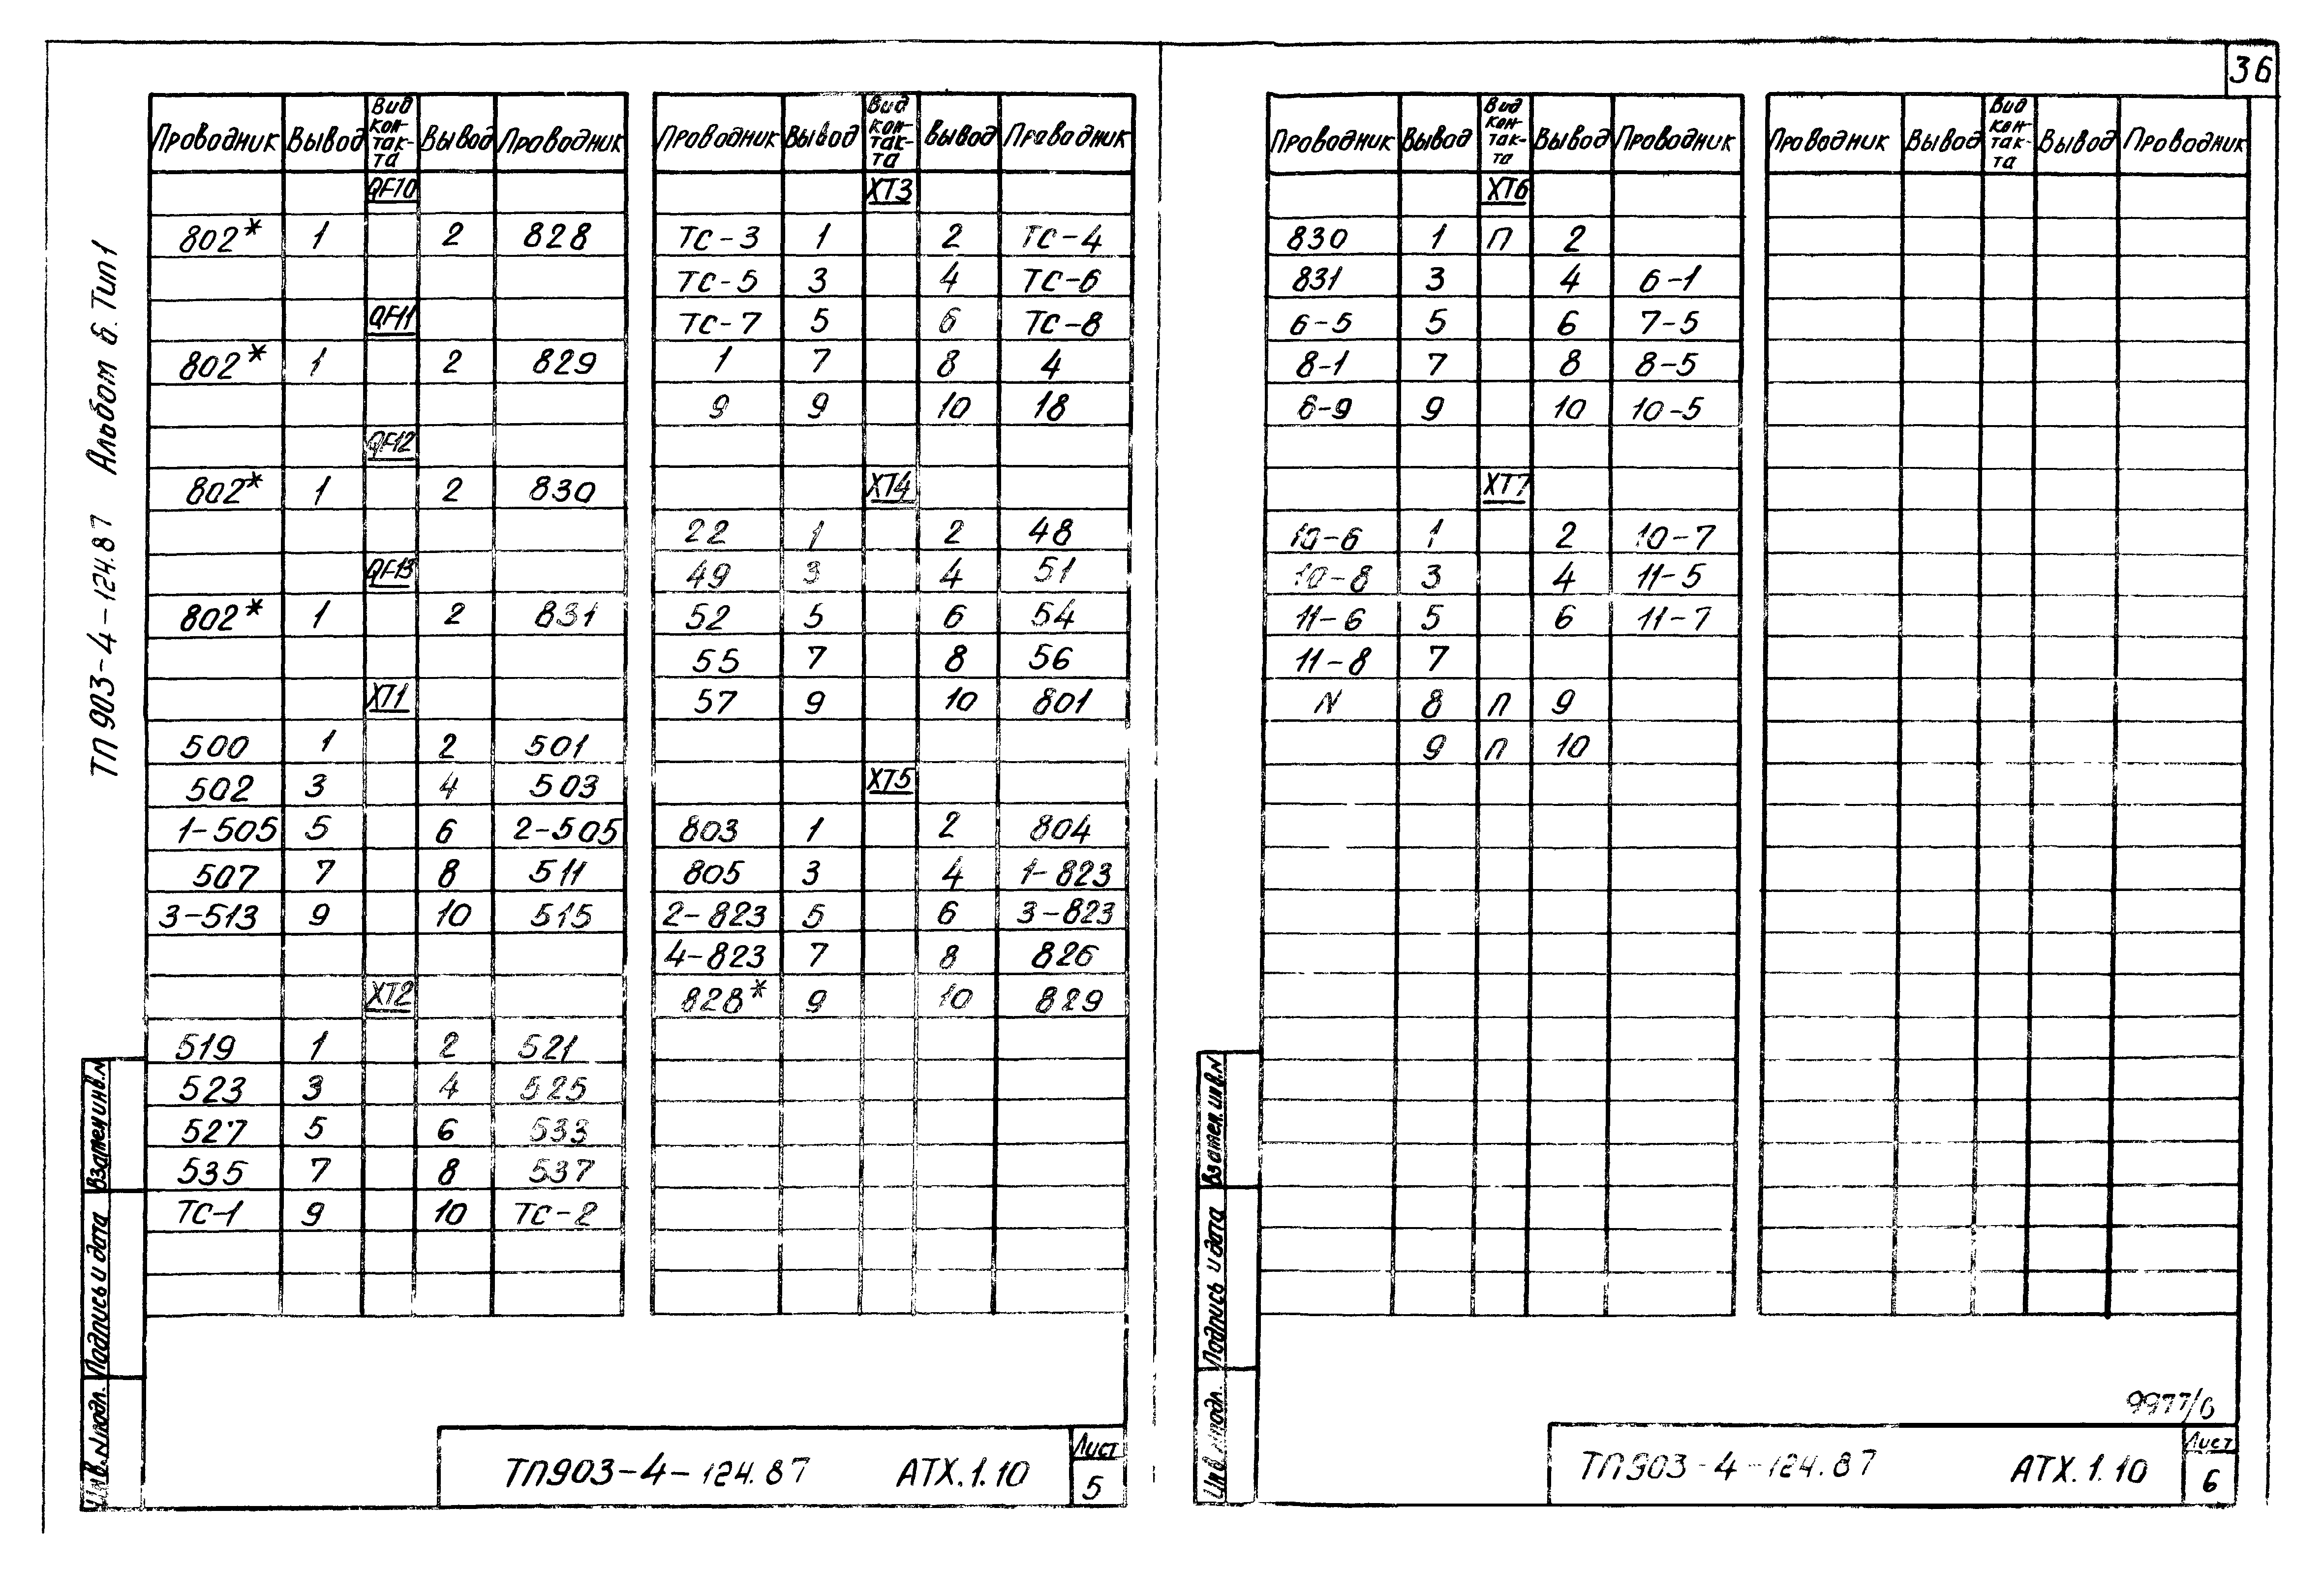 36
ТП 903-4-124.87 Альбом 6. Тип 1
Проводник Вывод Вид кон-так-та Вывод Проводник
QF10
802* 1 2 828
QF11
802* 1 2 829
QF12
802* 1 2 830
QF13
802* 1 2 831
XT1
500 1 2 501
502 3 4 503
1-505 5 6 2-505
507 7 8 511
3-513 9 10 515
XT2
519 1 2 521
523 3 4 525
527 5 6 533
535 7 8 537
ТС-1 9 10 ТС-2
Проводник Вывод Вид кон-так-та Вывод Проводник
XT3
ТС-3 1 2 ТС-4
ТС-5 3 4 ТС-6
ТС-7 5 6 ТС-8
1 7 8 4
9 9 10 18
XT4
22 1 2 48
49 3 4 51
52 5 6 54
55 7 8 56
57 9 10 801
XT5
803 1 2 804
805 3 4 1-823
2-823 5 6 3-823
4-823 7 8 826
828* 9 10 829
Взамен инв.N
Подпись и дата
Инв.N подл.
ТП903-4-124.87 АТХ.1.10
Лист
5
Проводник Вывод Вид кон-так-та Вывод Проводник
XT6
830 1 П 2
831 3 4 6-1
6-5 5 6 7-5
8-1 7 8 8-5
6-9 9 10 10-5
XT7
10-6 1 2 10-7
10-8 3 4 11-5
11-6 5 6 11-7
11-8 7
N 8 П 9
9 П 10
Проводник Вывод Вид кон-так-та Вывод Проводник
Взамен.инв.N
Подпись и дата
Инв.N подл.
9977/6
ТП903-4-124.87 АТХ.1.10
Лист
6